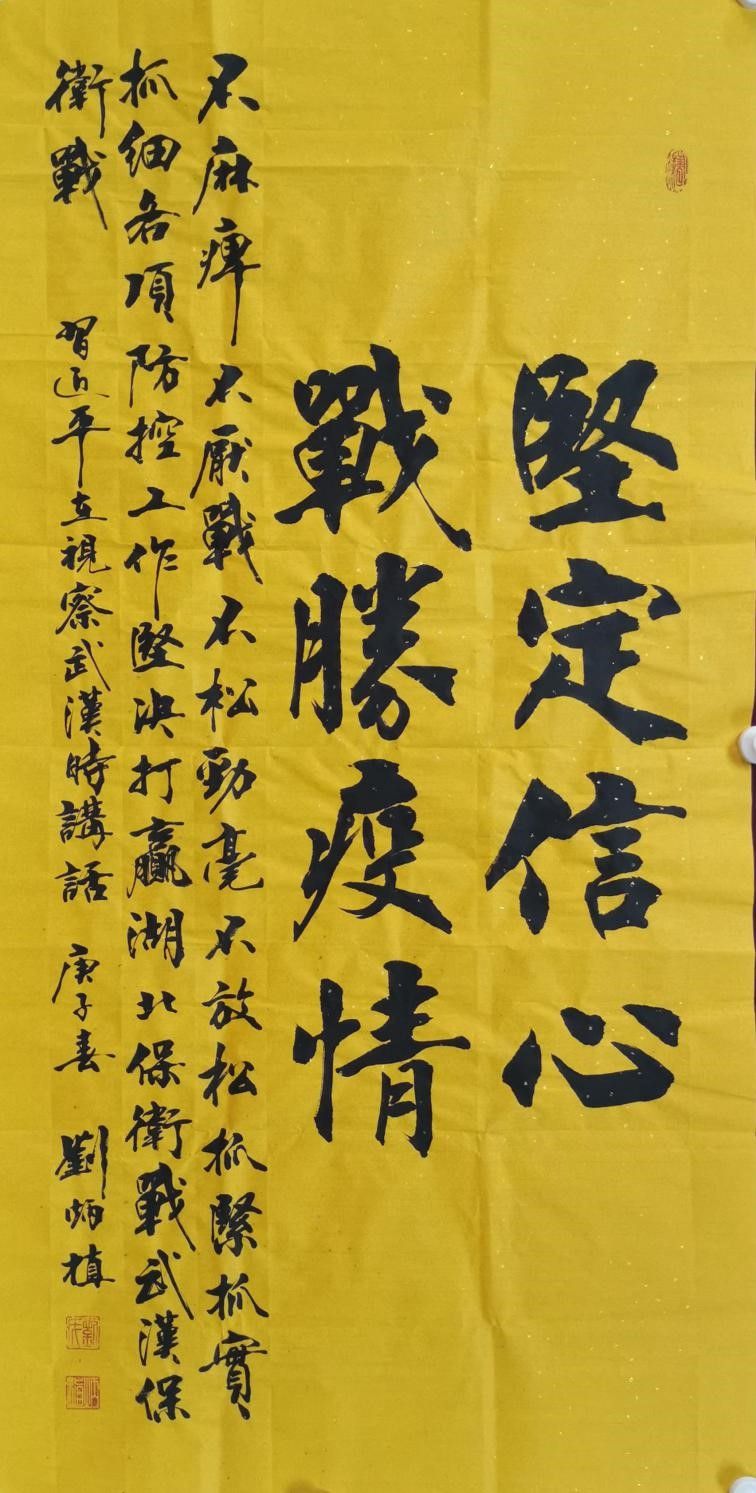 堅定信心
戰勝疫情
不麻痺不厭戰不松勁毫不放松抓緊抓實
抓細各項防控工作堅決打贏湖北保衛戰武漢保
衛戰
習近平在視察武漢時講話 庚子春 劉炳植